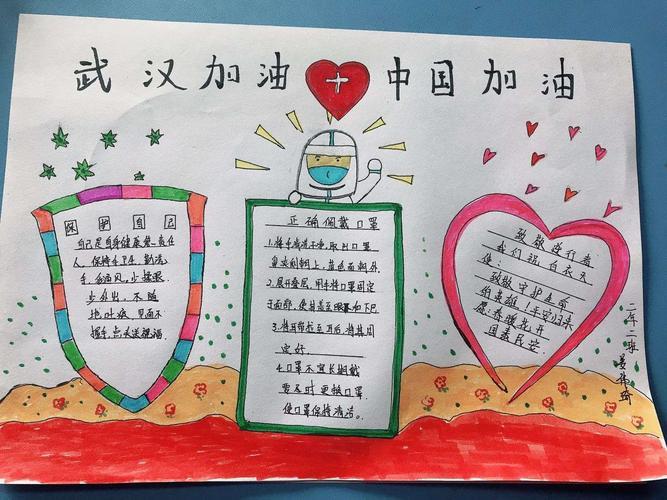 武汉加油 中国加油
保护自己
自己是自身健康第一责任
人，保持手卫生，勤洗
手，多通风，少揉眼，
少外出，不随
地吐痰，见面不
握手，点头送祝福。
正确佩戴口罩
1.将手清洗干净，取出口罩
鱼夹侧朝上，蓝色面朝外
2.展开叠层，用手将口罩固定
于面部，使其盖至眼鼻和下巴
3.将耳带挂至耳后，将其固
定好。
4.口罩不宜长期戴
要及时更换口罩
使口罩保持清洁。
致敬逆行者
我们祝白衣天
使：
致敬守护生命
的英雄！平安归来
愿：春暖花开
国泰民安。
二年二班